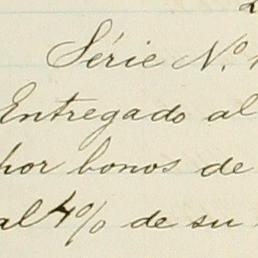 Série N.º
Entregado al
por bonos de
al 4% de su